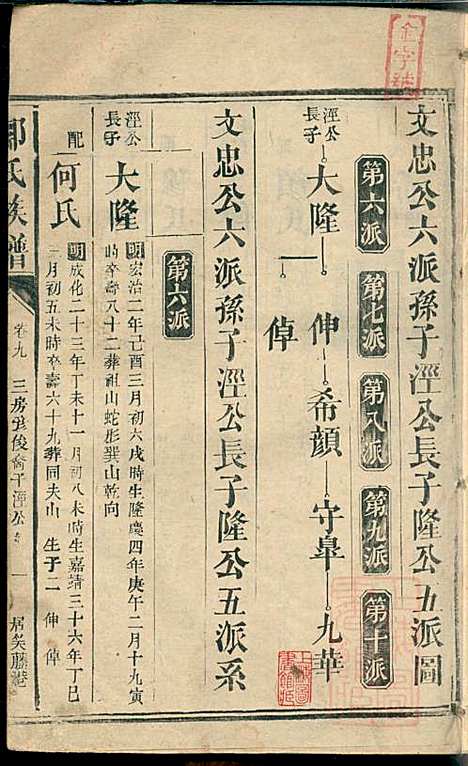 金字號
文忠公六派孫子涇公長子隆公五派圖
第六派 第七派 第八派 第九派 第十派
涇公長子 大隆 伸 希顔 守皋 九華
倬
文忠公六派孫子涇公長子隆公五派系
第六派
涇公長子 大隆 明宏治二年己酉三月初六戌時生隆慶四年庚午二月十九寅
時卒壽八十二葬祖山蛇形巽山乾向
配 何氏 明成化二十三年丁未十一月初八未時生嘉靖三十六年丁巳
月初五未時卒壽六十九葬同夫山 生子二 伸 倬
氏族譜 卷九 三房 俊裔子涇公 一 居敦藤港